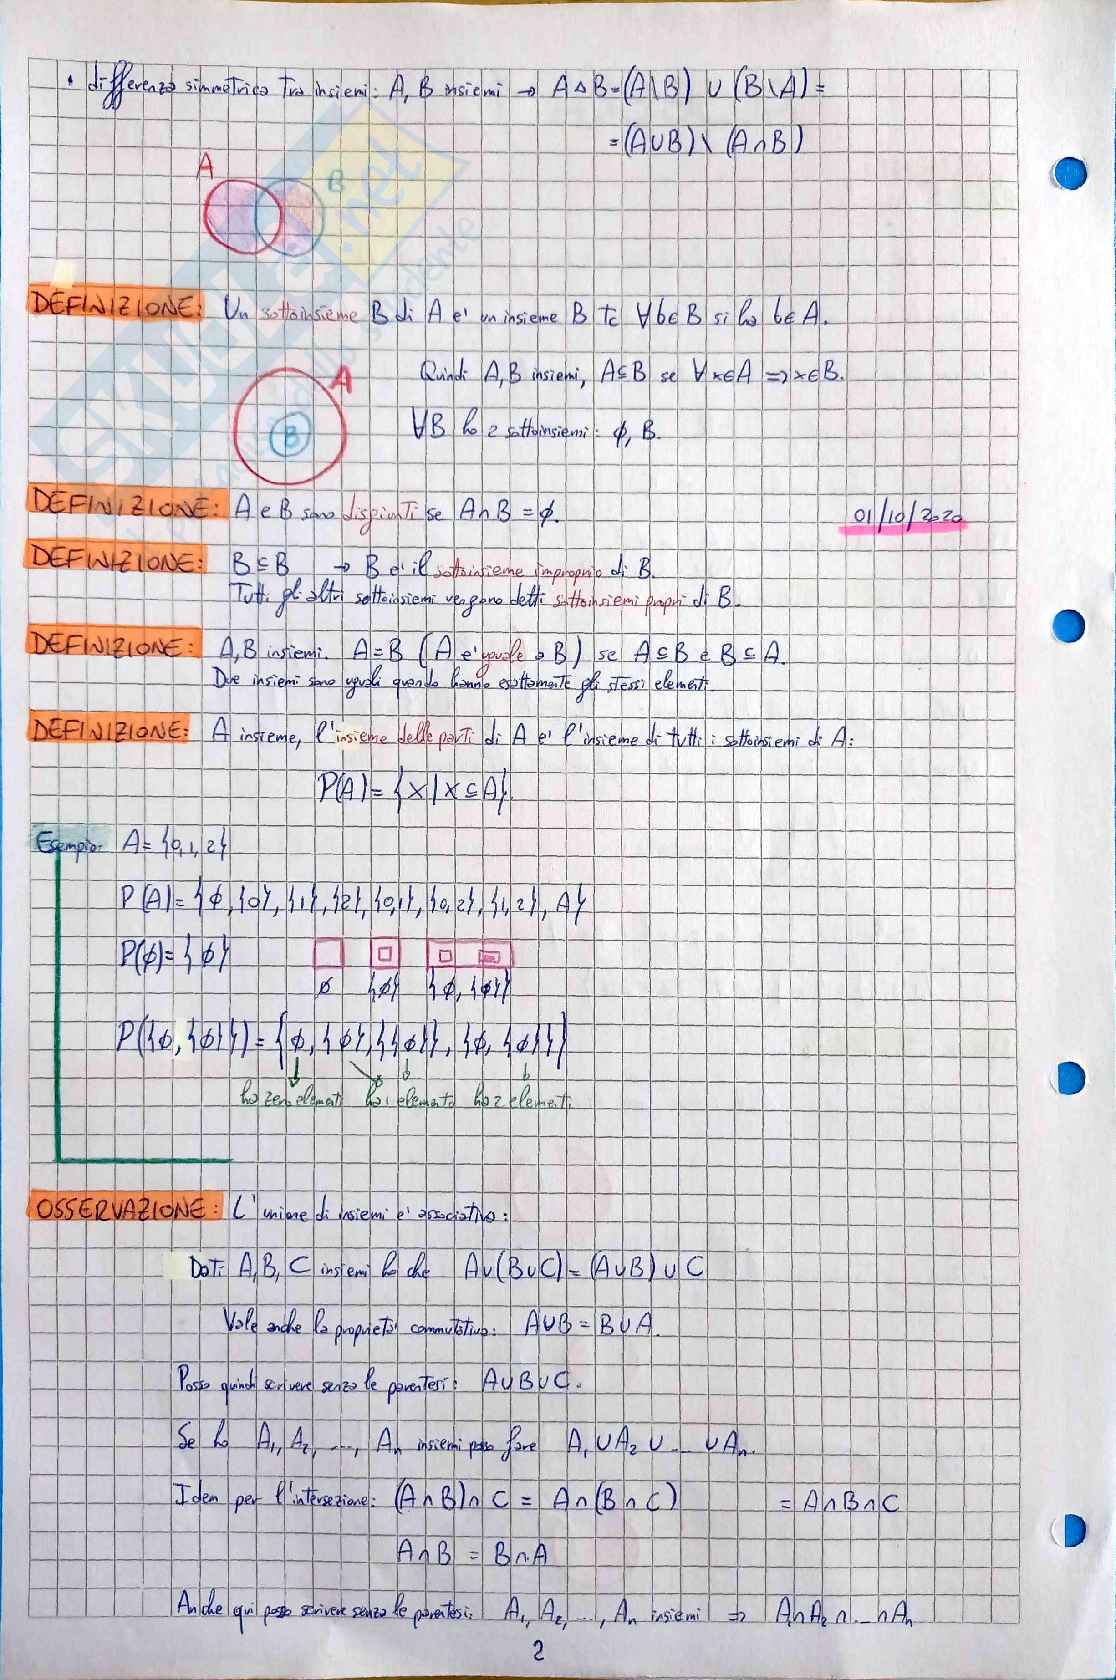 • differenza simmetrica tra insiemi: A, B insiemi → A △ B = (A\B) ∪ (B\A) =
= (A∪B) \ (A∩B)
A
B
DEFINIZIONE: Un sottoinsieme B di A e' un insieme B tc ∀b∈B si ha b∈A.
Quindi A,B insiemi, A⊆B se ∀x∈A ⇒ x∈B.
A
B
∀B ho 2 sottoinsiemi: ϕ, B.
DEFINIZIONE: A e B sono disgiunti se A∩B = ϕ.
01/10/2020
DEFINIZIONE: B⊆B → B e' il sottoinsieme improprio di B.
Tutti gli altri sottoinsiemi vengono detti sottoinsiemi propri di B.
DEFINIZIONE: A,B insiemi. A=B (A e' uguale a B) se A⊆B e B⊆A.
Due insiemi sono uguali quando hanno esattamente gli stessi elementi.
DEFINIZIONE: A insieme, l'insieme delle parti di A e' l'insieme di tutti i sottoinsiemi di A:
P(A) = {X | X⊆A}.
Esempio: A = {0,1,2}
P(A) = {ϕ, {0}, {1}, {2}, {0,1}, {0,2}, {1,2}, A}
P(ϕ) = {ϕ}
ϕ {ϕ} {ϕ, {ϕ}}
P({ϕ, {ϕ}}) = {ϕ, {ϕ}, {{ϕ}}, {ϕ, {ϕ}}}
ha zero elementi ha 1 elemento ha 2 elementi
OSSERVAZIONE: L'unione di insiemi e' associativa:
Dati A,B,C insiemi ho che A∪(B∪C) = (A∪B)∪C
Vale anche la proprieta' commutativa: A∪B = B∪A.
Posso quindi scrivere senza le parentesi: A∪B∪C.
Se ho A₁, A₂, ..., Aₙ insiemi posso fare A₁∪A₂∪...∪Aₙ.
Idem per l'intersezione: (A∩B)∩C = A∩(B∩C) = A∩B∩C
A∩B = B∩A
Anche qui posso scrivere senza le parentesi: A₁, A₂, ..., Aₙ insiemi ⇒ A₁∩A₂∩...∩Aₙ
2